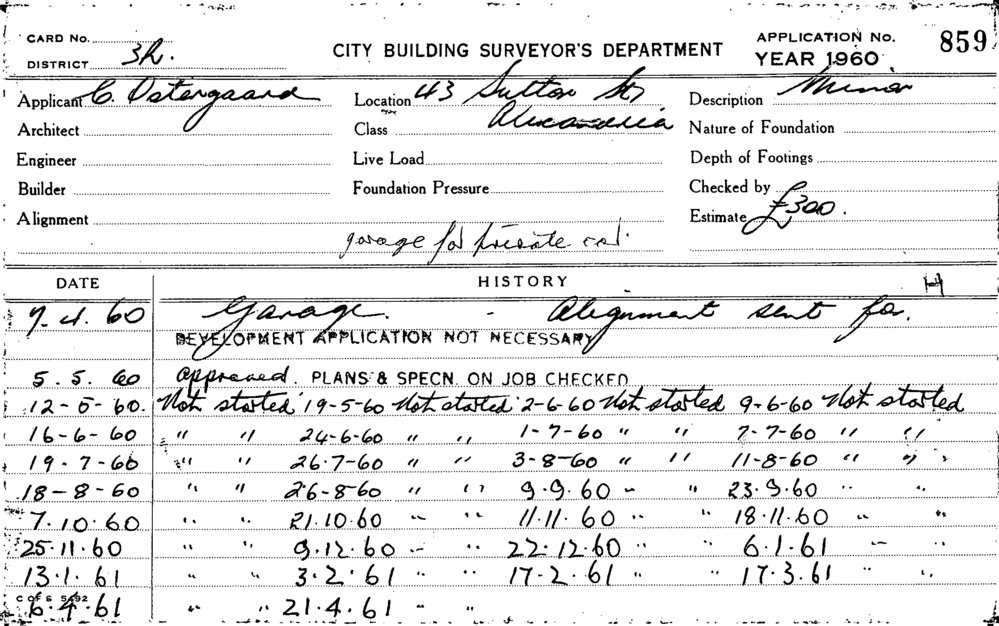 CARD No.
DISTRICT 3R.
CITY BUILDING SURVEYOR'S DEPARTMENT
APPLICATION No. 859
YEAR 1960
Applicant C. Ostergaard Location 43 Sutton St, Description Minor
Architect Class Alexandria Nature of Foundation
Engineer Live Load Depth of Footings
Builder Foundation Pressure Checked by
Alignment Estimate £300.
garage for private car.
DATE HISTORY H
7.4.60 Garage. - Alignment sent for.
DEVELOPMENT APPLICATION NOT NECESSARY
5.5.60 approved. PLANS & SPECN. ON JOB CHECKED
12-5-60. Not started 19-5-60 Not started 2-6-60 Not started 9-6-60 Not started
16-6-60 " " 24-6-60 " " 1-7-60 " " 7-7-60 " "
19.7-60 " " 26.7-60 " " 3-8-60 " " 11-8-60 " "
18-8-60 " " 26-8-60 " " 9.9.60 " " 23.9.60 " "
7.10.60 " " 21.10.60 " " 11.11.60 " " 18.11.60 " "
25.11.60 " " 9.12.60 " " 22.12.60 " " 6.1.61 " "
13.1.61 " " 3.2.61 " " 17-2.61 " " 17.3.61 " "
C OF S 5492
6.4.61 " " 21.4.61 " "